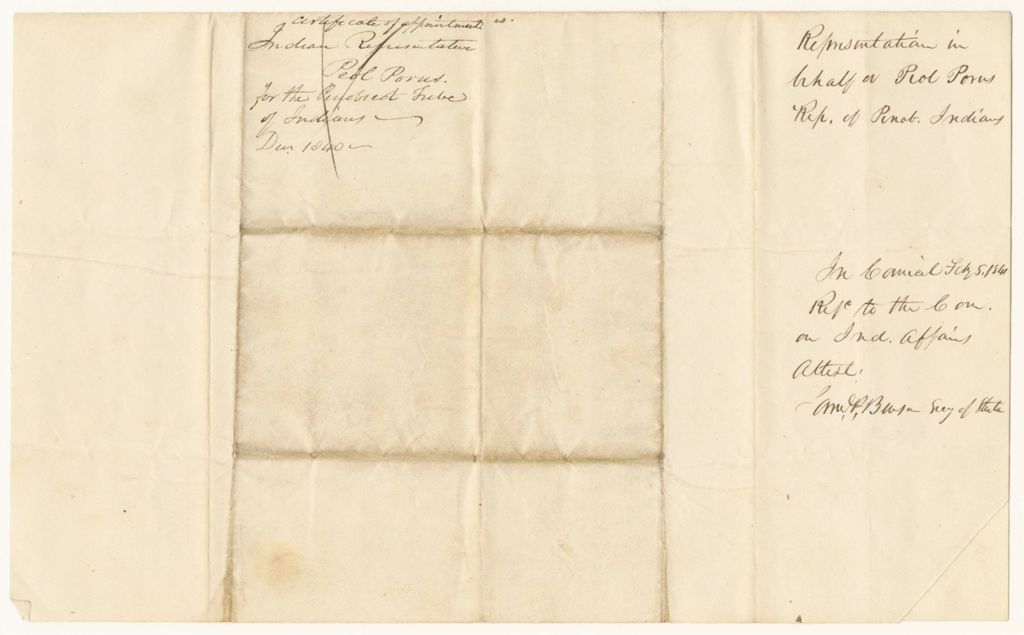 certificate of appointment
Indian Representative
Peol Porus.
for the Penobscot Tribe
of Indians
Dec. 1840
Representation in
behalf of Peol Porus
Rep. of Penob. Indians
In Council Feby 5, 1841
Refd to the Com.
on Ind. Affairs
Attest.
Saml P. Benson Secy of State